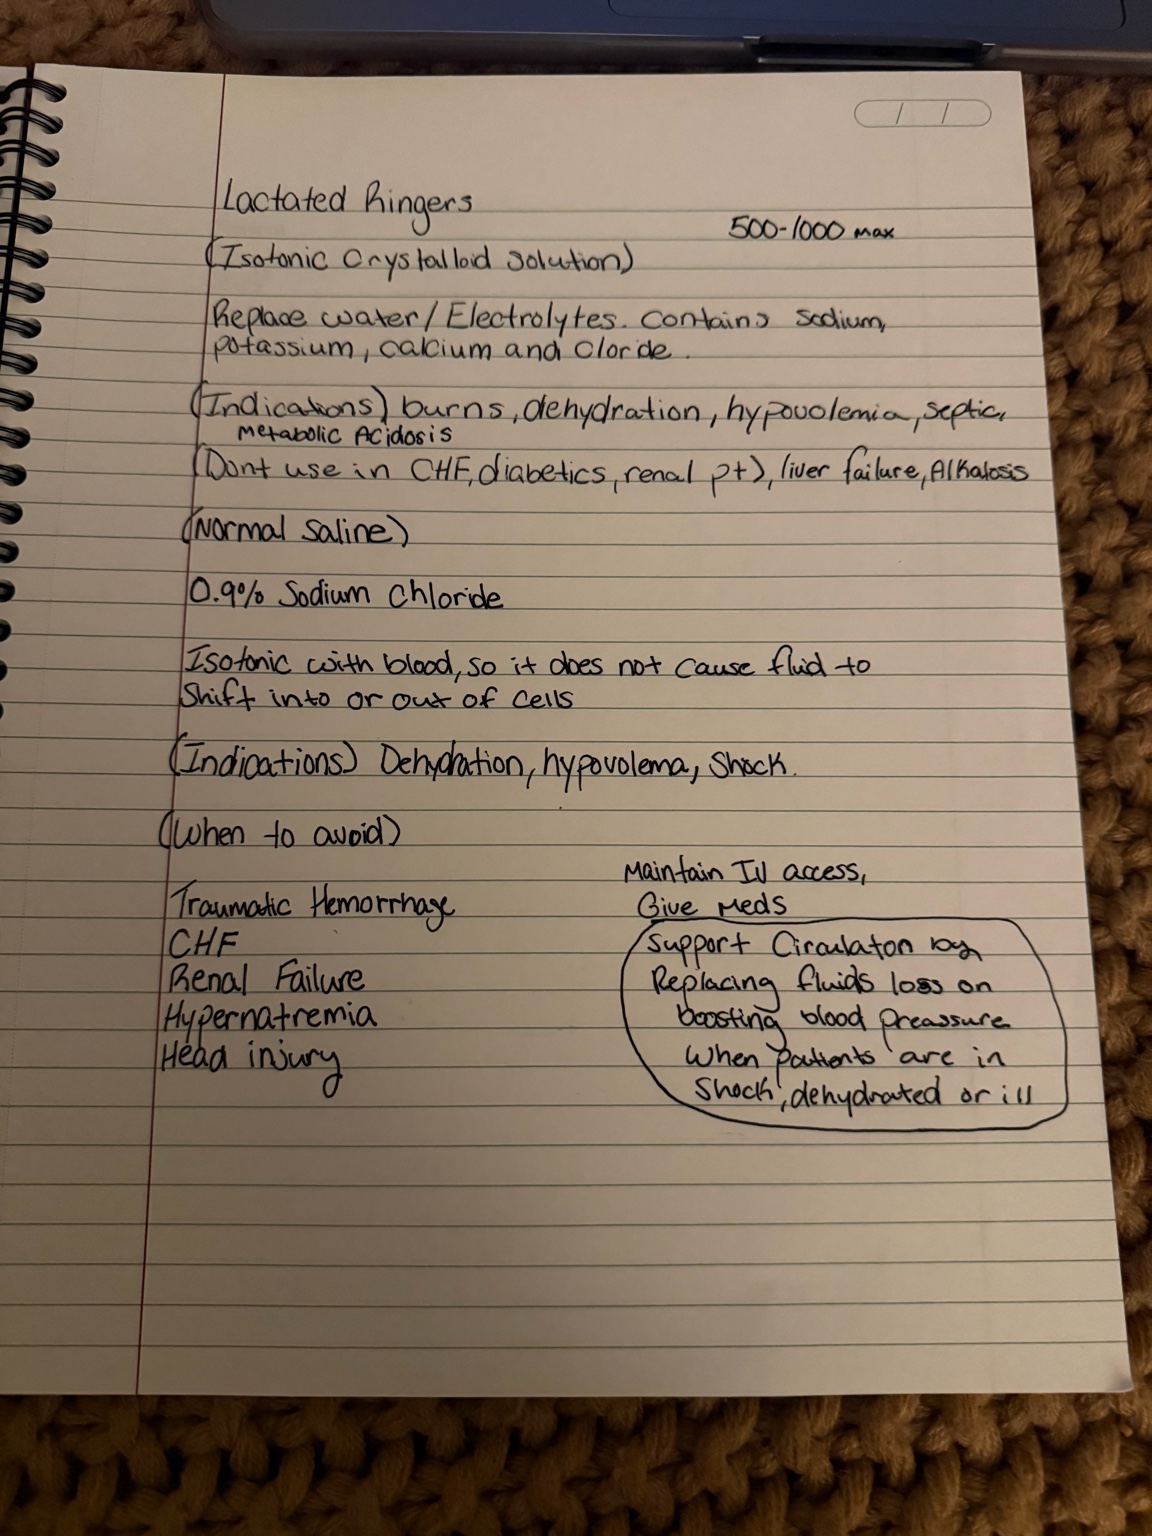 Lactated Ringers
500-1000 max
(Isotonic Crystalloid Solution)
Replace water/Electrolytes. contains sodium,
potassium, calcium and Cloride.
(Indications) burns, dehydration, hypovolemia, septic,
Metabolic Acidosis
(Dont use in CHF, diabetics, renal pt), liver failure, Alkalosis
(Normal Saline)
0.9% Sodium Chloride
Isotonic with blood, so it does not cause fluid to
Shift into or out of cells
(Indications) Dehydration, hypovolema, Shock.
(When to avoid)
Traumatic Hemorrhage
CHF
Renal Failure
Hypernatremia
Head injury
Maintain IV access,
Give Meds
Support Circulaton by
Replacing fluids loss on
boosting blood preassure
When patients are in
Shock, dehydrated or ill